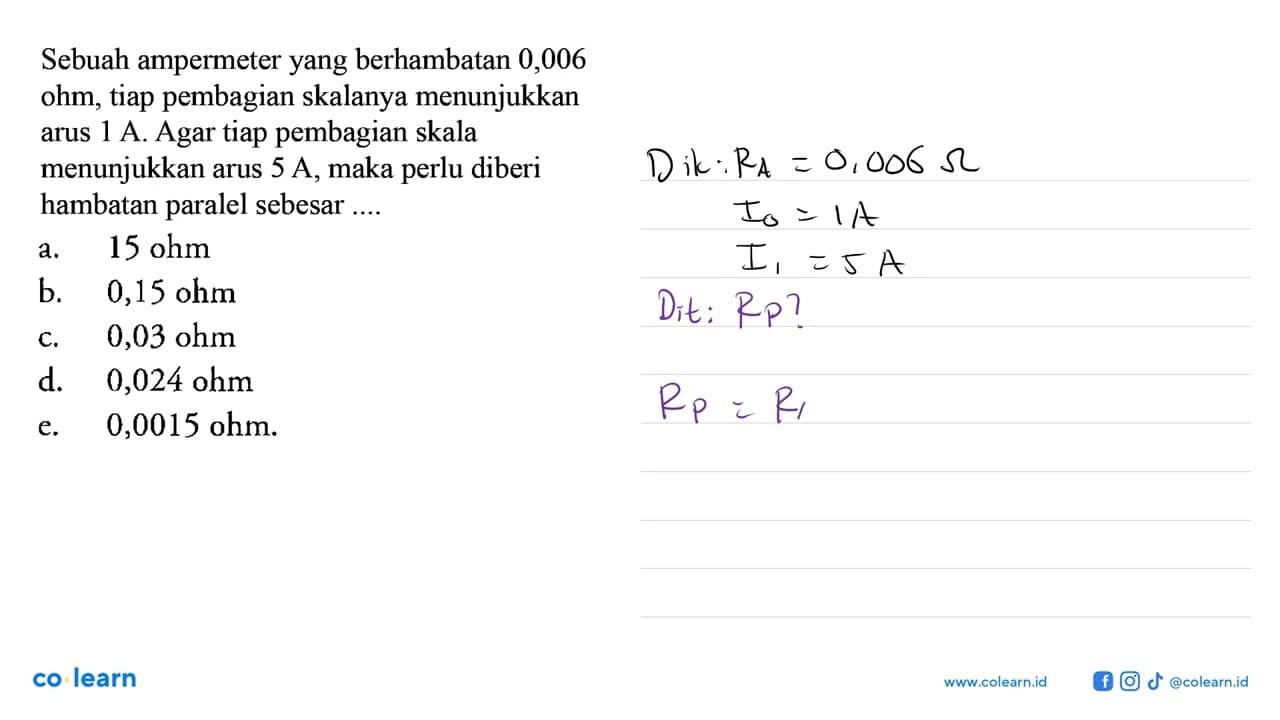 Sebuah ampermeter yang berhambatan 0,006
ohm, tiap pembagian skalanya menunjukkan
arus 1 A. Agar tiap pembagian skala
menunjukkan arus 5 A, maka perlu diberi
hambatan paralel sebesar ....
a. 15 ohm
b. 0,15 ohm
c. 0,03 ohm
d. 0,024 ohm
e. 0,0015 ohm.
Dik: RA = 0,006 Ω
I0 = 1A
I1 = 5 A
Dit: Rp?
Rp = R
co learn
www.colearn.id
@colearn.id